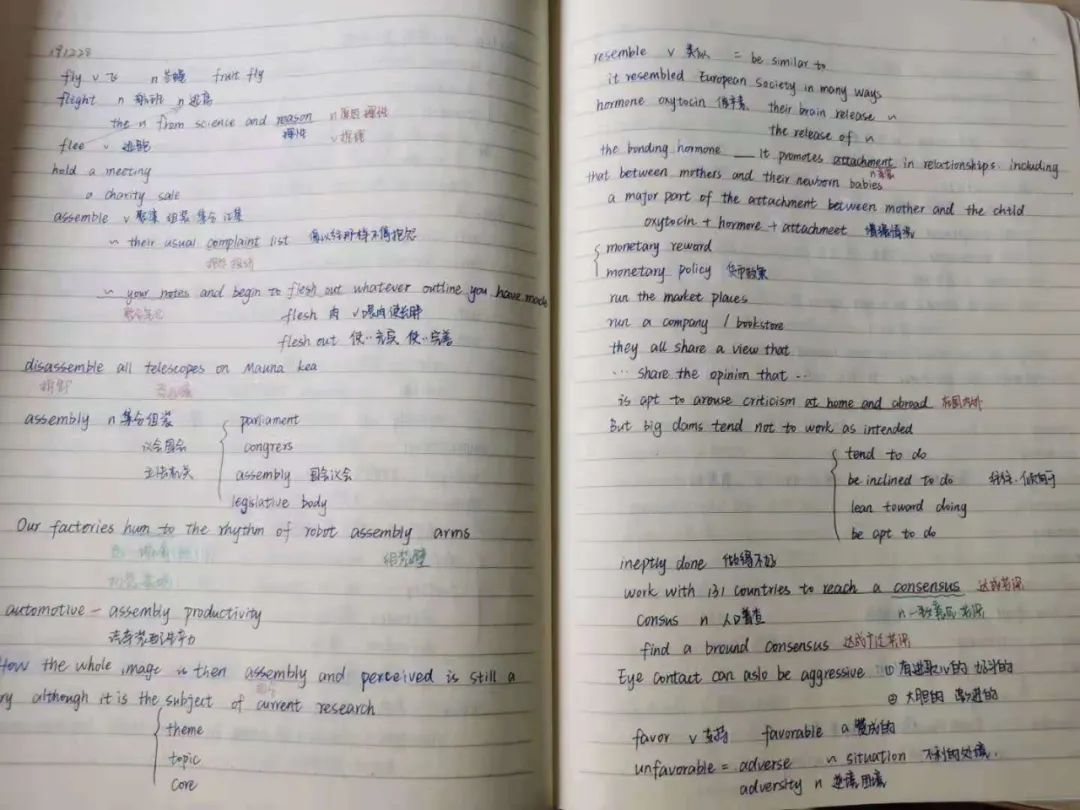 191228
fly v 飞 n 苍蝇 fruit fly
flight n 航班 n 逃离
the n from science and reason n 原因 理性
理性
flee v 逃跑
hold a meeting
a charity sale
assemble v 聚集 组装 集合 汇集
~ their usual complaint list
~ your notes and begin to flesh out whatever outline you have made
flesh 肉 v
flesh out 使..充实 使..完善
disassemble all telescopes on Mauna kea
拆卸
assembly n 集合组装 parliament
议会国会 congress
立法机关 assembly 国会议会
legislative body
Our factories hum to the rhythm of robot assembly arms
组装臂
automotive - assembly productivity
How the whole image is then assembly and perceived is still a
ry although it is the subject of current research
theme
topic
core
resemble v 类似 = be similar to
it resembled European society in many ways
hormone oxytocin 催产素 their brain release ~
the release of n
the bonding hormone __ it promotes attachment in relationships. including
that between mothers and their newborn babies
a major part of the attachment between mother and the child
oxytocin + hormore + attachmeet
monetary reward
monetary policy 货币政策
run the market places
run a company / bookstore
they all share a view that
... share the opinion that ..
is apt to arouse criticism at home and abroad 在国内外
But big dams tend not to work as intended
tend to do
be inclined to do 往往.倾向于
lean toward doing
be apt to do
ineptly done 做得不好
work with 131 countries to reach a consensus 达成共识
consus n 人口普查 n 一致意见 共识
find a bround consensus 达成广泛共识
Eye contact can aslo be aggressive ① 有进取心的 好斗的
② 大胆的 激进的
favor v 支持 favorable a 赞成的
unfavorable = adverse ~ situation 不利的处境.
adversity n 逆境 困境